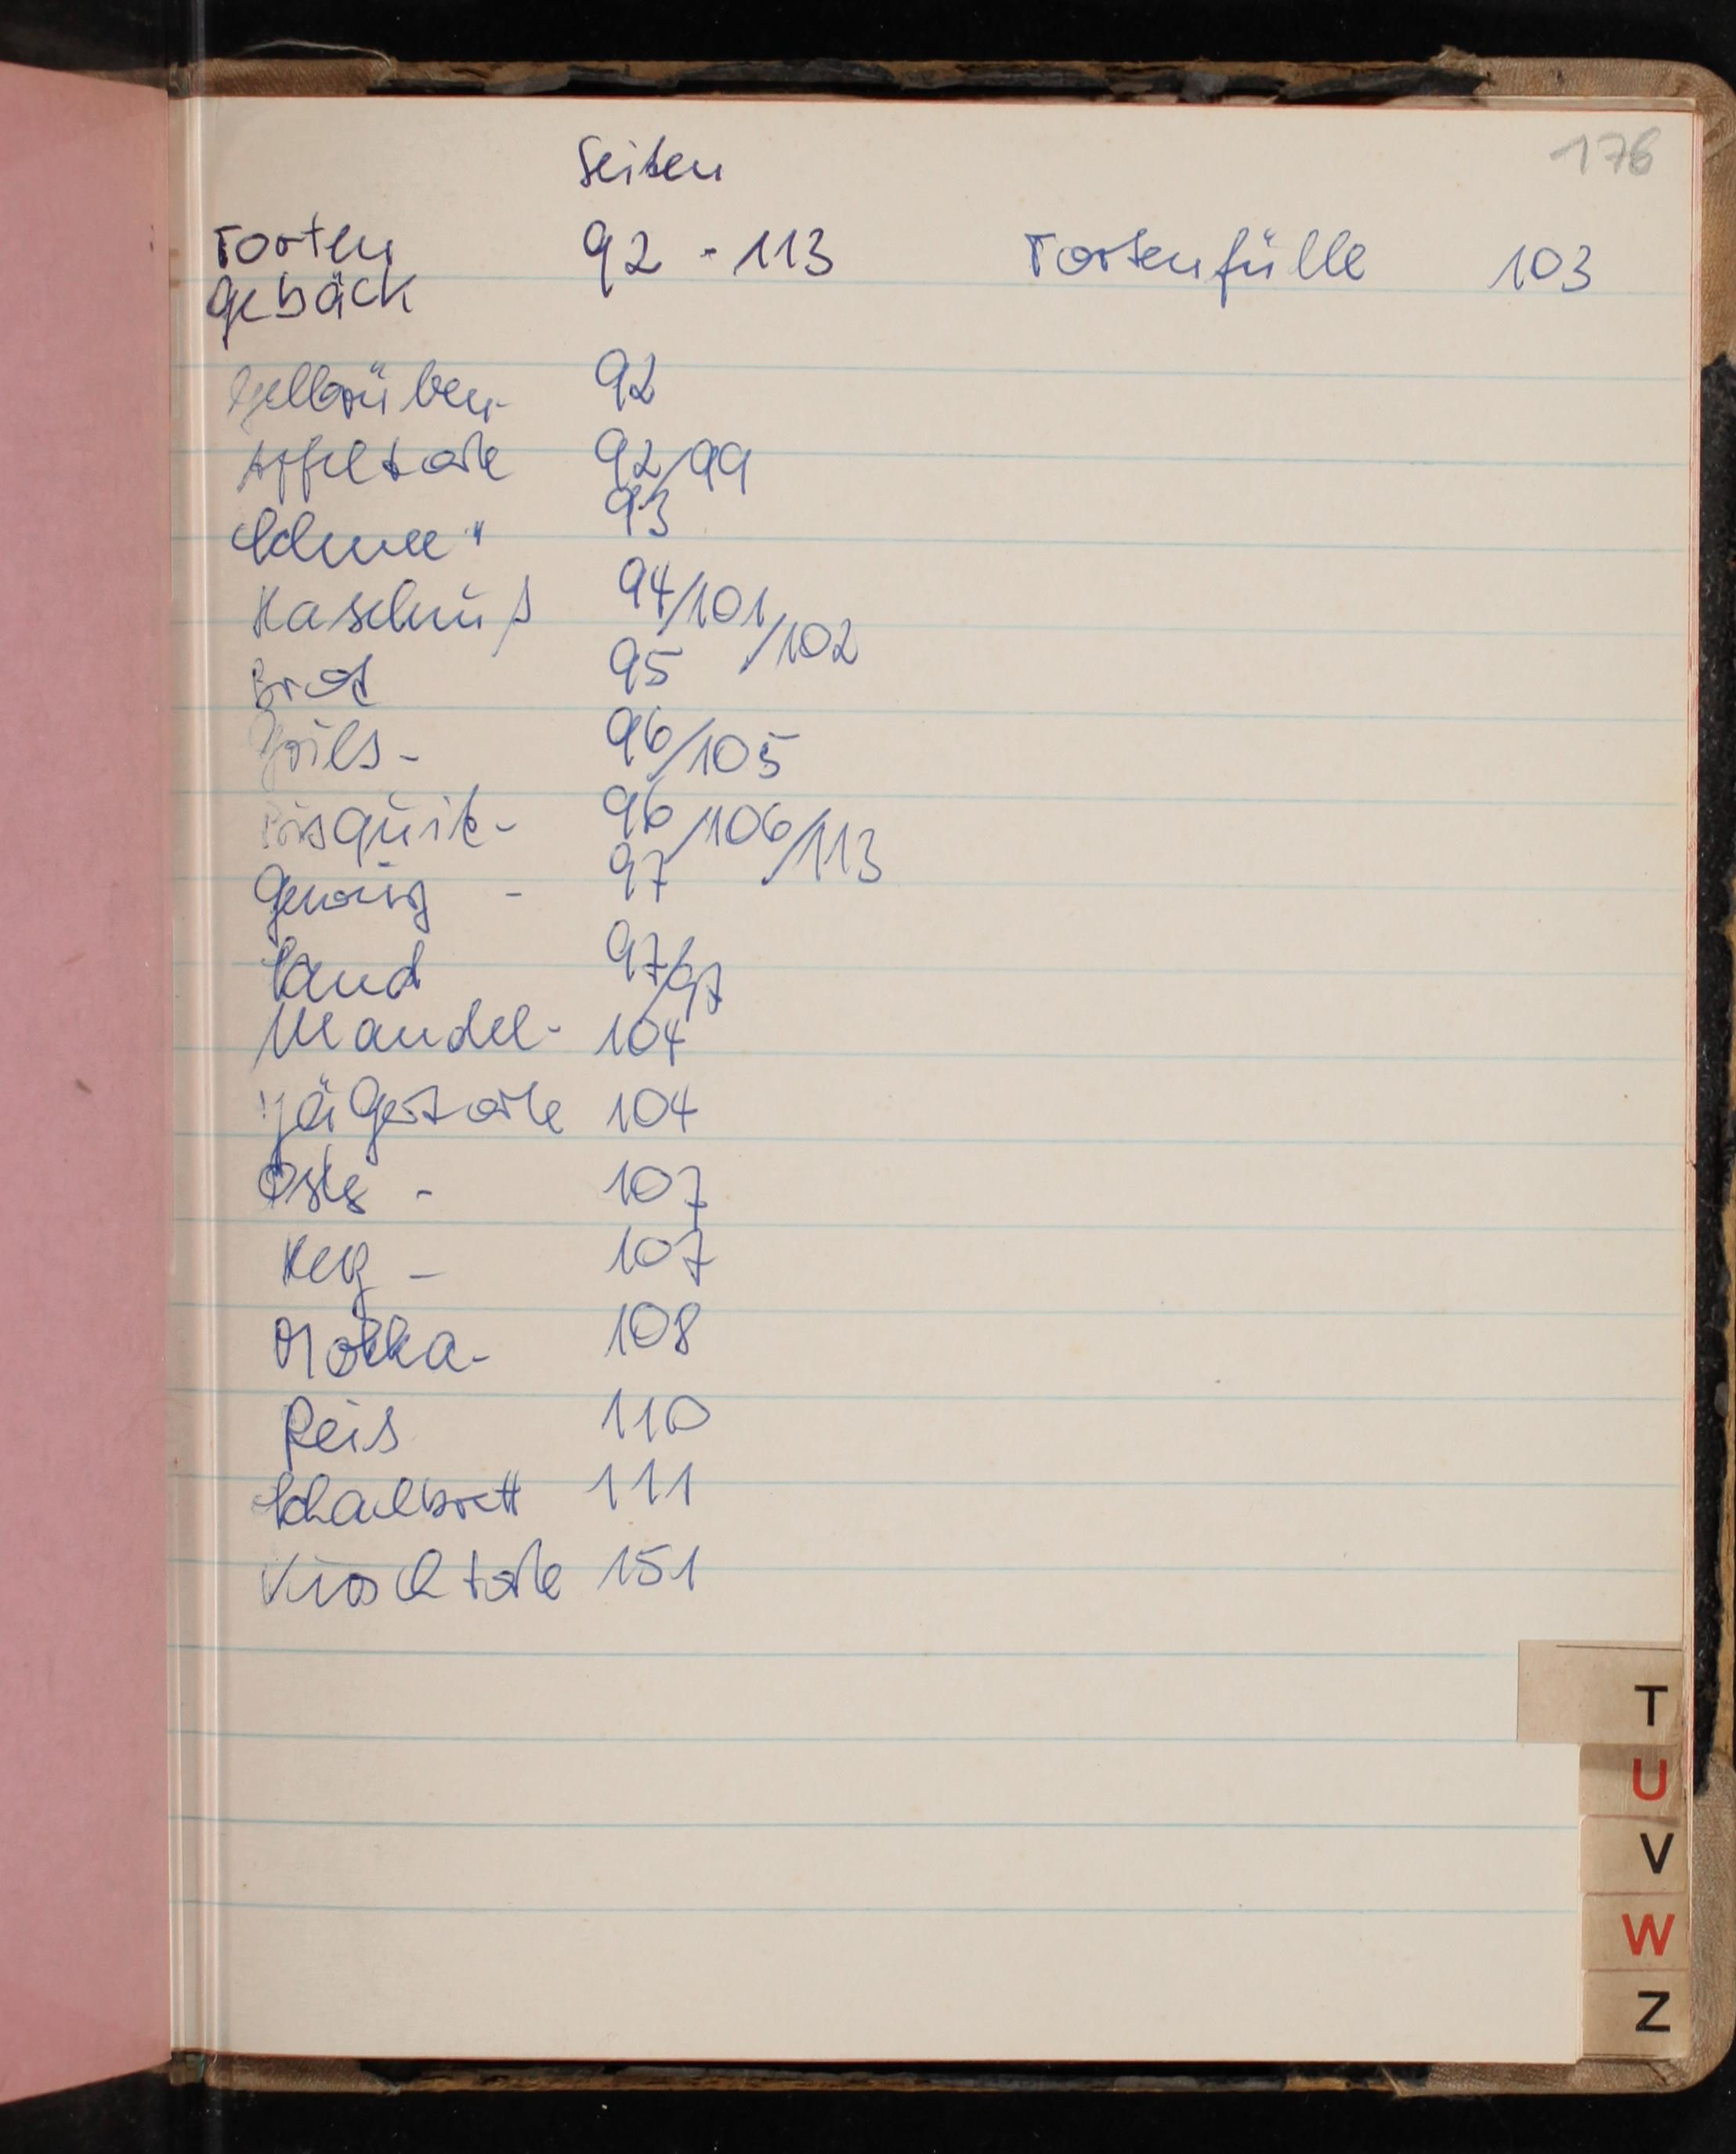 176
Seiten
Torten 92 - 113 Tortenfülle 103
gebäck
Gelbrüben- 92
Apfeltorte 92/99
Schnee " 93
Haselnuß 94/101/102
Brot 95
Grieß- 96/105
Bisquit- 96/106/113
Gewürz - 97
Sand 97/97
Mandel- 104
Jägertorte 104
Oster - 107
Herz - 107
Mokka- 108
Reis 110
Schachbrett 111
Kirschtorte 151
T
U
V
W
Z